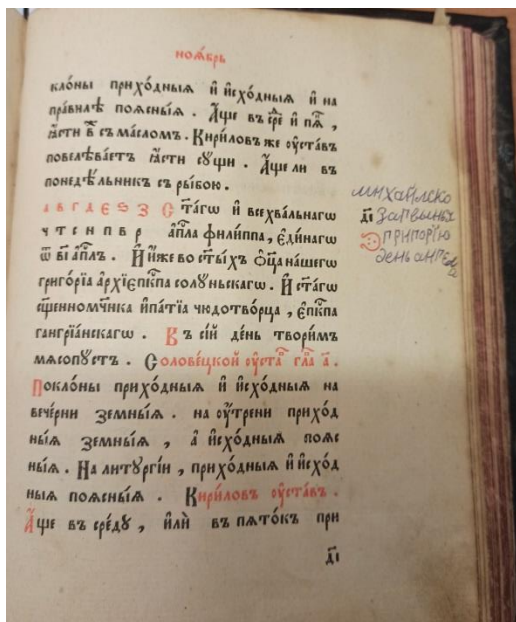 ноѧ́брь
клоны прихо́дныѧ и҆ и҆схо́дныѧ и҆ на
пра́вилѣ поѧсны́ѧ . А҆́ще въ срⷣе и҆ пѧⷦ҇ ,
ꙗ҆́сти в҃ съ ма́сломъ . Кири́ловъ же ᲂу҆ста́въ
повелѣва́етъ ꙗ҆́сти сꙋ́щи . А҆́ще ли въ
понедѣ́льникъ съ ры́бою .
а в г д є ѕ з С̑та́гѡ и҆ всехва́льнагѡ
ч т с н п в р а҆пⷭ҇ла фили́ппа , є҆ди́нагѡ
ѿ в҃і а҆пⷭ҇лъ . И҆ и҆́же во ст҃ы́хъ ѻ҆ц҃а̀ на́шегѡ
григо́рїа а҆рхїєпⷭ҇кпа солꙋ́ньскагѡ . И҆ ст҃а́гѡ
сщ҃енномч҃нка и҆па́тїа чюдотво́рца , є҆пⷭ҇кпа
гангрїа́нскагѡ . Въ сі́й де́нь твори́мъ
мѧсопꙋ́стъ . Солове́цкой ᲂу҆ста́ⷡ гла̑ а҃ .
Покло́ны прихо́дныѧ и҆ и҆схо́дныѧ на
вече́рни земны́ѧ . на ᲂу҆́трени прихо́д
ныѧ земны́ѧ , а҆ и҆схо́дныѧ поѧс
ны́ѧ . На литꙋргі́и , прихо́дныѧ и҆ и҆схо́д
ныѧ поѧсны́ѧ . Кири́ловъ ᲂу҆ста́въ .
А҆́ще въ сре́дꙋ , и҆лѝ въ пѧто́къ при
д҃і
д҃і